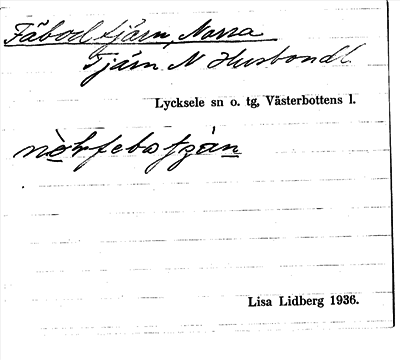 Fäbodtjärn, Norra
Tjärn N Husbondl.
Lycksele sn o. tg, Västerbottens l.
Lisa Lidberg 1936.